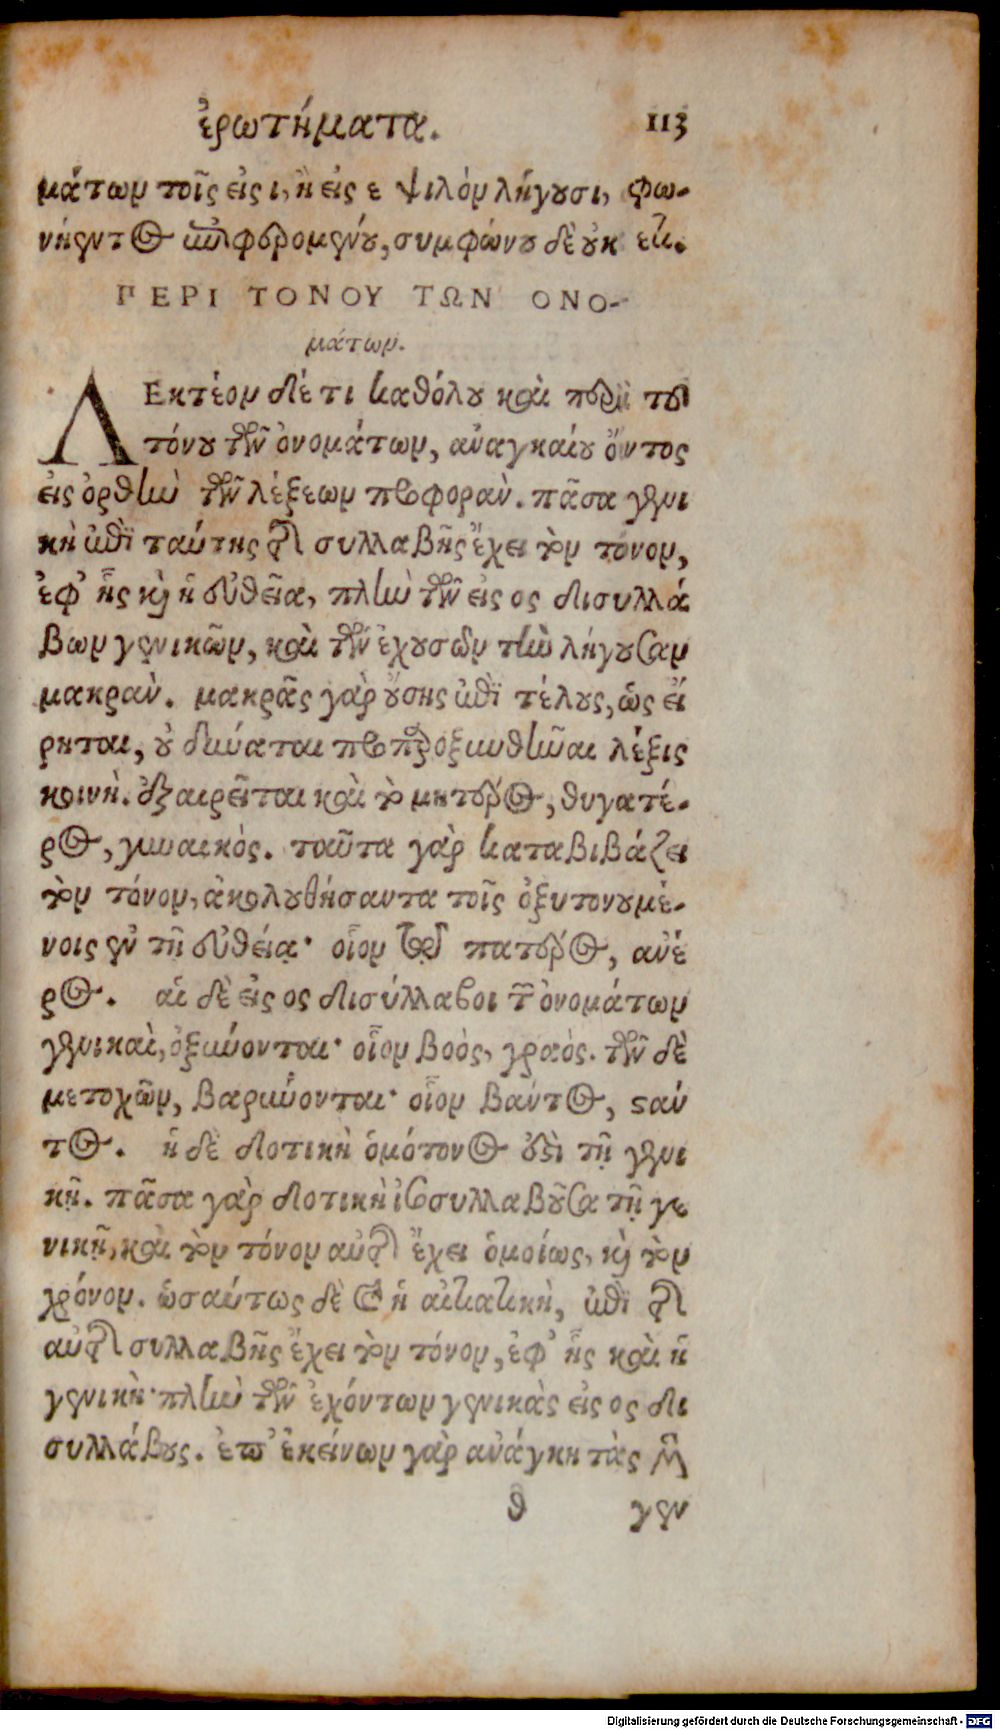 ἐρωτήματα. 113
μάτων τοῖς εἰς ι, ἢ εἰς ε ψιλὸν λήγουσι, φω-
νήεντος ἐπιφερομένου, συμφώνου δὲ οὐκ ἔτι.
ΠΕΡΙ ΤΟΝΟΥ ΤΩΝ ΟΝΟ-
μάτων.
ΛΕκτέον δέ τι καθόλου καὶ περὶ τοῦ
τόνου τῶν ὀνομάτων, ἀναγκαίου ὄντος
εἰς ὀρθὴν τῶν λέξεων προφοράν. πᾶσα γενι
κὴ ἐπὶ ταύτης τῆς συλλαβῆς ἔχει τὸν τόνον,
ἐφ' ἧς κὶ ἡ εὐθεῖα, πλὴν τῶν εἰς ος δισυλλά
βων γενικῶν, καὶ τῶν ἐχουσῶν τὴν λήγουσαν
μακράν. μακρᾶς γὰρ οὔσης ἐπὶ τέλους, ὡς εἴ
ρηται, οὐ δύναται προπαροξυνθῆναι λέξις
κοινή. ἐξαιρεῖται καὶ τὸ μητέρος, θυγατέ-
ρος, γυναικός. ταῦτα γὰρ καταβιβάζει
τὸν τόνον, ἀκολουθήσαντα τοῖς ὀξυτονουμέ-
νοις ἐν τῇ εὐθείᾳ· οἷον τῷ πατέρος, ἀνέ
ρος. αἱ δὲ εἰς ος δισύλλαβοι τῶν ὀνομάτων
γενικαὶ, ὀξύνονται· οἷον βοὸς, γραός. τῶν δὲ
μετοχῶν, βαρύνονται· οἷον βάντος, στάν
τος. ἡ δὲ δοτικὴ ὁμότονος ἐστὶ τῇ γενι
κῇ. πᾶσα γὰρ δοτικὴ ἰσοσυλλαβοῦσα τῇ γε
νικῇ, καὶ τὸν τόνον αὐτῆς ἔχει ὁμοίως, κὶ τὸν
χρόνον. ὡσαύτως δὲ καὶ ἡ αἰτιατικὴ, ἐπὶ τῆς
αὐτῆς συλλαβῆς ἔχει τὸν τόνον, ἐφ' ἧς καὶ ἡ
γενική· πλὴν τῶν ἐχόντων γενικὰς εἰς ος δι
συλλάβους. ἐπ' ἐκείνων γὰρ ἀνάγκη τὰς μὲν
θ γεν
Digitalisierung gefördert durch die Deutsche Forschungsgemeinschaft - DFG